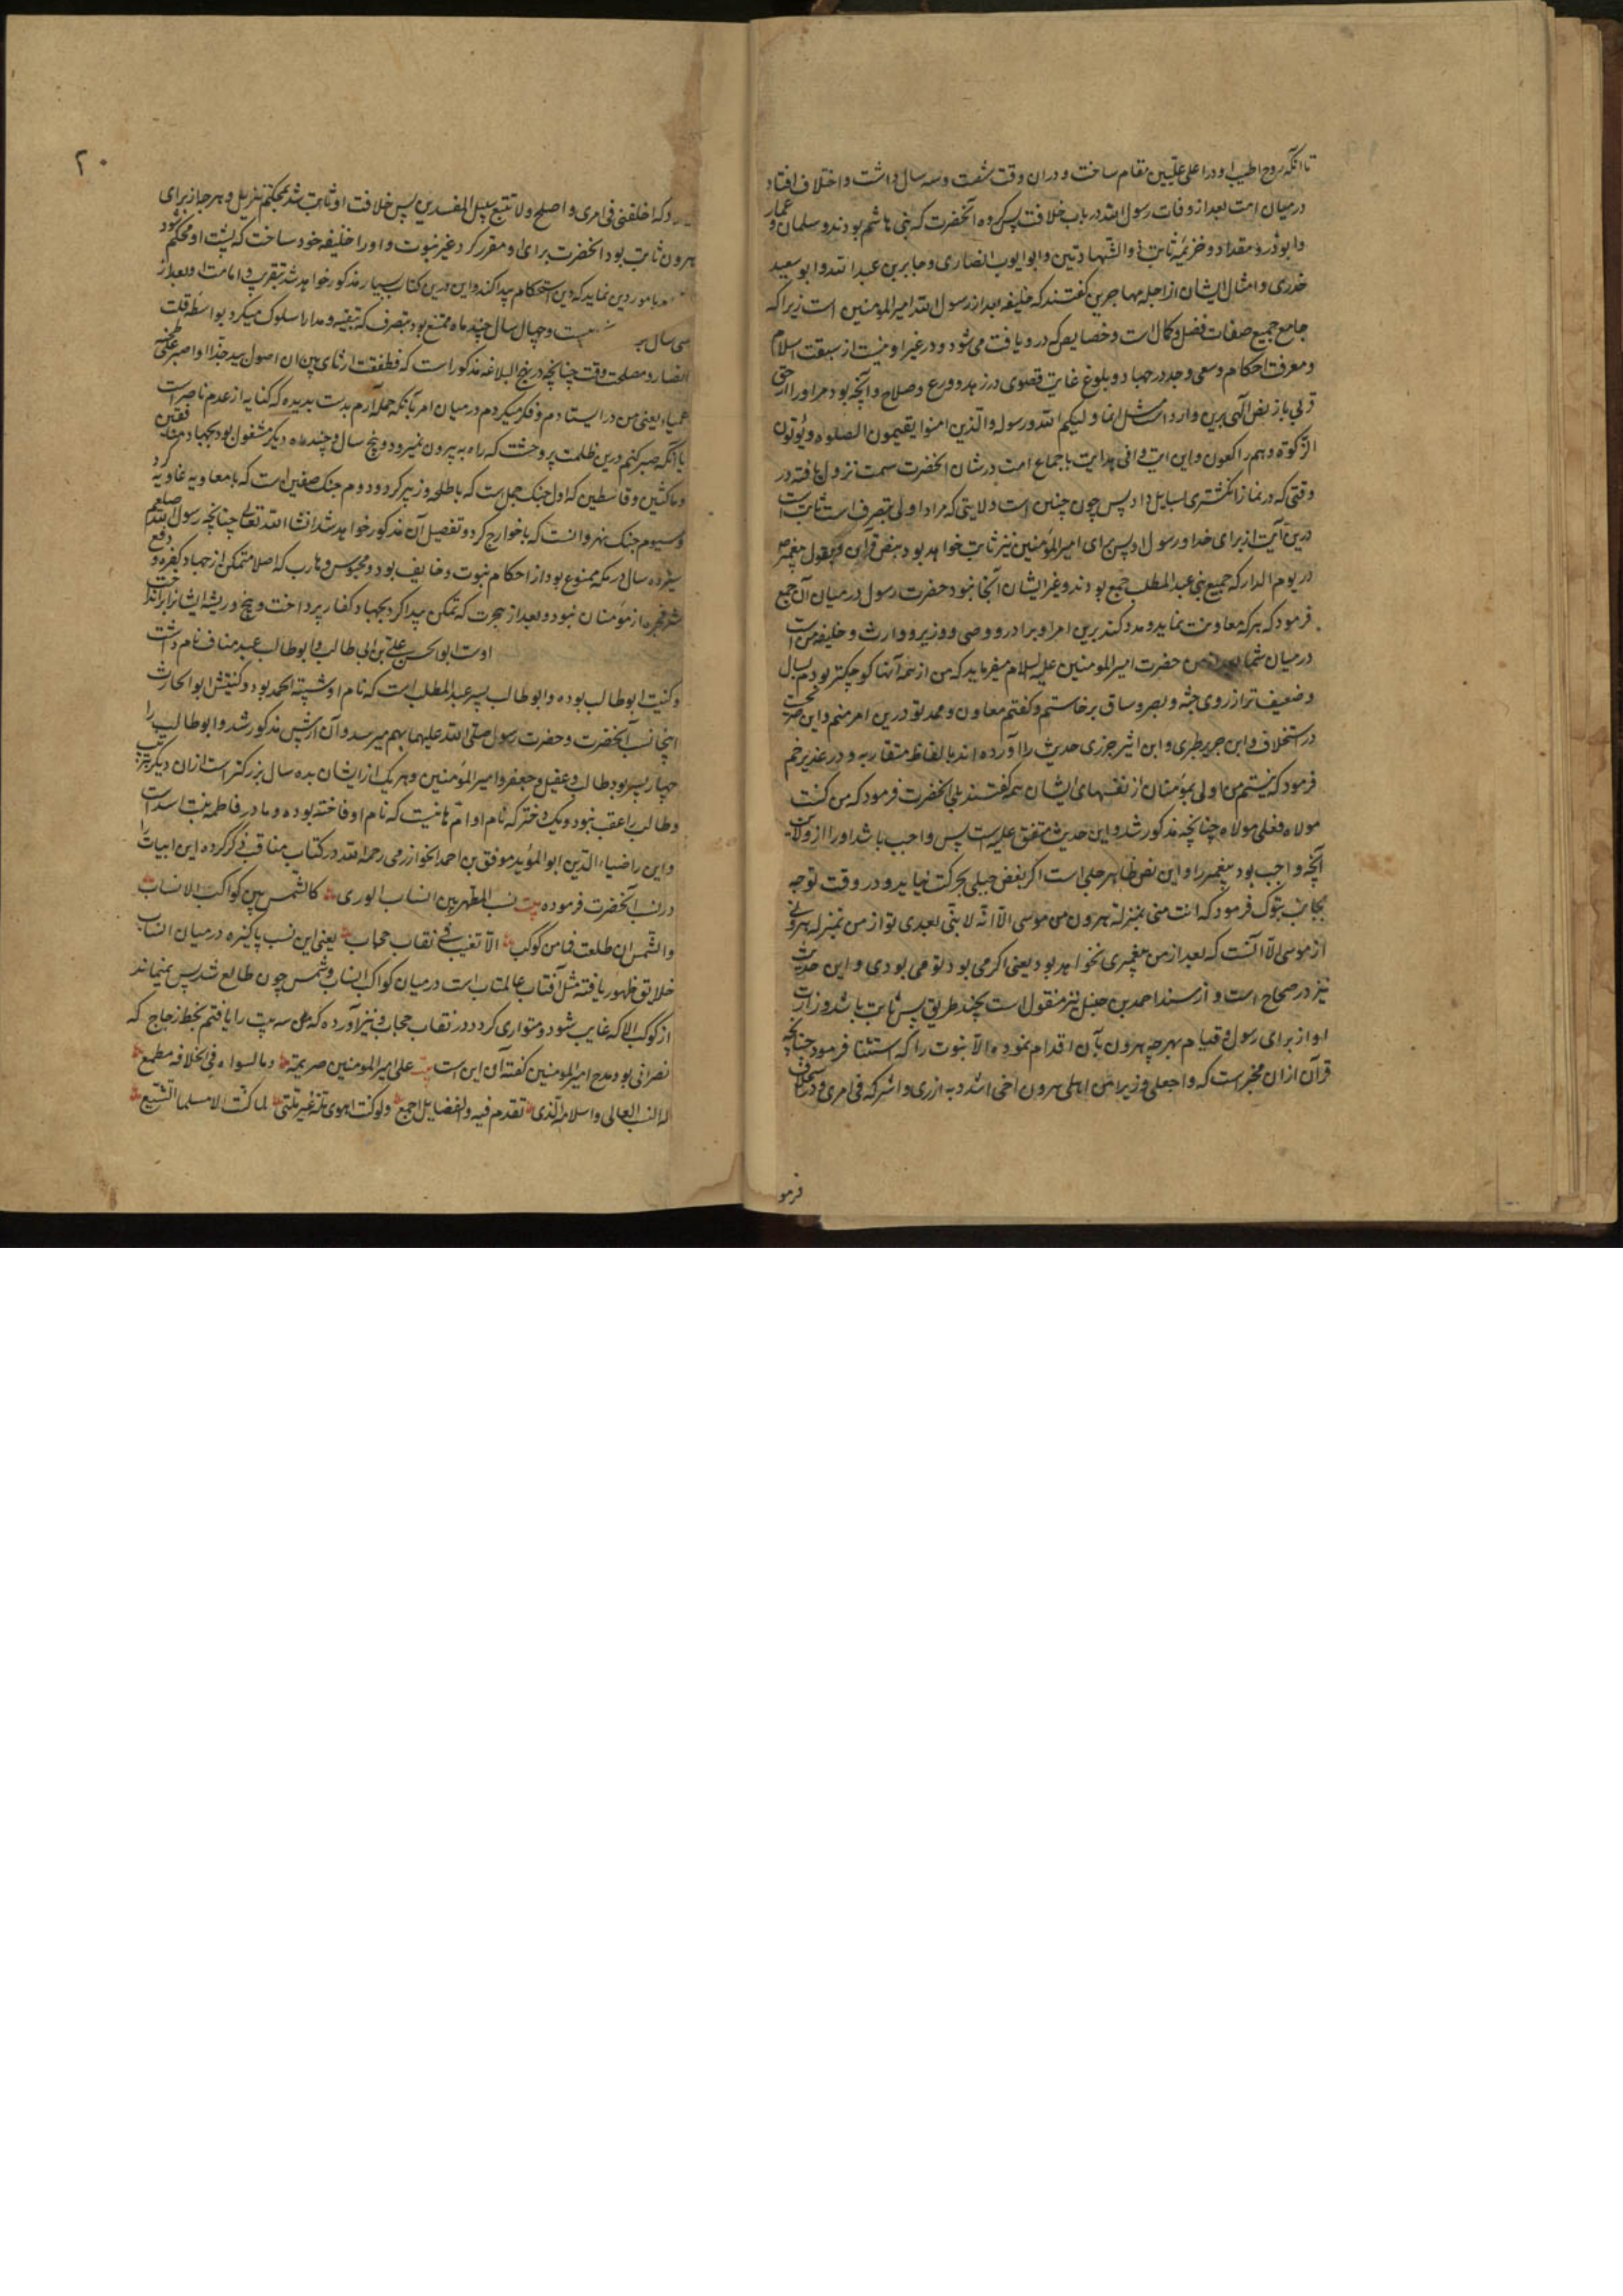 تا آنکه روح اطیب او در اعلی علیین مقام ساخت و دران وقت شصت و سه سال داشت و اختلاف افتاد
در میان امت بعد از وفات رسول الله در باب خلافت پس گروه آنحضرت که بنی هاشم بودند و سلمان و عمار
و ابوذر و مقداد و خزیمه ثابت ذو الشهادتین و ابو ایوب انصاری و جابر بن عبد الله و ابو سعید
خدری و امثال ایشان از اجله مهاجرین گفتند که خلیفه بعد از رسول الله امیر المومنین است زیرا که
جامع جمیع صفات فضل و کمال است و خصایص که درو یافت می شود و در غیر او نیست از سبقت اسلام
و معرفت احکام و سعی و جد در جهاد و بلوغ غایت قصوی در زهد و ورع و صلاح و آنچه بود مر او را از حق
قربی باز نص الهی برین وارد است مثل انما ولیکم الله و رسوله والذین امنوا یقیمون الصلوه و یوتون
الزکوة و هم راکعون و این ایت وافی هدایت باجماع امت در شان انحضرت سمت نزول یافته در
وقتی که در نماز انگشتری بسایل داد پس چون چنین است ولایتی که مراد اولی بتصرف است ثابت است
درین آیت از برای خدا و رسول او پس برای امیر المومنین نیز ثابت خواهد بود بنص قرآن و بقول پیغمبر
در یوم الدار که جمیع بنی عبد المطلب جمع بودند و غیر ایشان آنجا نبود حضرت رسول در میان آن جمع
فرمود که هر که معاونت نماید و مدد کند برین امر او برادر و وصی و وزیر و وارث و خلیفه من است
در میان شما بعد از من حضرت امیر المومنین علیه السلام میفرماید که من از همه آنها کوچکتر بودم بسال
و ضعیف تر از روی جثه و بصر و ساق برخاستم و گفتم معاون و ممد تو درین امر منم و این
در استخلاف و ابن جریر طبری و ابن اثیر جزری حدیث را آورده اند بالفاظ متقاربه و در غدیر خم
فرمود که نیستم من اولی بمؤمنان از نفسهای ایشان همه گفتند بلی آنحضرت فرمود که من کنت
مولاه فعلی مولاه چنانچه مذکور شد و این حدیث متفق علیه است پس واجب باشد او را از ولایت
آنچه واجب بود پیغمبر را و این نص ظاهر جلی است اگر بغض جبلی بحرکت نیاید و در وقت توجه
بجانب تبوک فرمود که انت منی بمنزلة هرون من موسی الا انه لا نبی بعدی تو از من بمنزله هرونی
از موسی الا آنست که بعد از من پیغمبری نخواهد بود یعنی اگر می بود تو می بودی و این حدیث
نیز در صحاح است و از مسند احمد بن حنبل نیز منقول است بچند طریق پس ثابت باشد وزارت
او از برای رسول و قیام بهر چه هرون بآن اقدام نموده والا نبوت را که استثنا فرمود چنانچه
قرآن ازان مخبر است که واجعلی وزیرا من اهلی هرون اخی اشدد به ازری و اشرکه فی امری و در استخلاف
فرمو
۲۰
که اخلفنی فی امری و اصلح ولا تتبع سبیل المفسدین پس خلافت او ثابت شد بمحکم تنزیل و هر چه از برای
هرون ثابت بود انحضرت برای او مقرر کرد غیر نبوت و او را خلیفه خود ساخت که پشت او محکم شود
بامور دین نماید که دین استحکام پیدا کند و این درین کتاب بسیار مذکور خواهد شد بتقریب و امامت او بعد از
سی سال بود بیست و چهار سال و چند ماه ممتنع بود بتصرف که بتقیه و مدارا سلوک میکرد بواسطه قلت
انصار و مصلحت وقت چنانچه در نهج البلاغه مذکور است که فطفقت ارتای بین ان اصول بید جذا او اصبر علی طخیه
عمیاء یعنی من در ایستادم و فکر میکردم در میان امر بآنکه حمله آرم بدست بریده که کنایه از عدم ناصر است
یا آنکه صبر کنم درین ظلمت پر وحشت که راه به بیرون نمیرود و پنج سال و چند ماه دیگر مشغول بود بجهاد منافقین
و ناکثین و قاسطین که اول جنگ جمل است که با طلحه و زبیر کرد و دوم جنگ صفین است که با معاویه غاویه کرد
و سیوم جنگ نهروانست که با خوارج کرد و تفصیل آن مذکور خواهد شد انشا الله تعالی چنانچه رسول الله صلعم
سیزده سال در مکه ممنوع بود از احکام نبوت و خایف بود و محبوس و هارب که اصلا متمکن از جهاد کفره و دفع
شر فجره از مؤمنان نبود و بعد از هجرت که تمکن پیدا کرد بجهاد کفار پرداخت و بیخ و ریشه ایشانرا برانداخت
اوست ابو الحسن علی بن ابی طالب و ابو طالب عبد مناف نام داشت
و کنیت ابو طالب بوده و ابو طالب پسر عبد المطلب است که نام او شیبة الحمد بود و کنیتش ابو الحارث
اینجا نسب آنحضرت و حضرت رسول صلی الله علیهما بهم میرسد و آن از پیش مذکور شد و ابو طالب را
چهار پسر بود طالب و عقیل و جعفر و امیر المؤمنین و هر یک از ایشان بده سال بزرگتر است ازان دیگر بترتیب
و طالب را عقب نبود و یک دختر که نام او ام هانیست که نام او فاخته بوده و مادر فاطمه بنت اسد است
و این را ضیاء الدین ابو المؤید موفق بن احمد الخوارزمی رحمه الله در کتاب مناقب ذکر کرده این ابیات را
در نسب آنحضرت فرموده بیت نسب المطهر بین انساب الوری کالشمس بین کواکب الانساب
والشمس ان طلعت فما من کوکب الا تغیب فی نقاب حجاب یعنی این نسب پاکیزه در میان انساب
خلایق ظهور یافته مثل آفتاب عالمتاب است در میان کواکب انساب و شمس چون طالع شد پس نمیماند
از کوکب الا که غایب شود و متواری گردد در نقاب حجاب و نیز آورده که من سه بیت را یافتم بخط زجاج که
نصرانی بود مدح امیر المومنین گفته آن این است بیت علی امیر المومنین صریمته وما لسواه فی الخلافه مطمع
له النسب العالی و اسلامه الذی تقدم فیه والفضایل اجمع ولو کنت اهوی ملة غیر ملتی لما کنت الا مسلما اتشیع